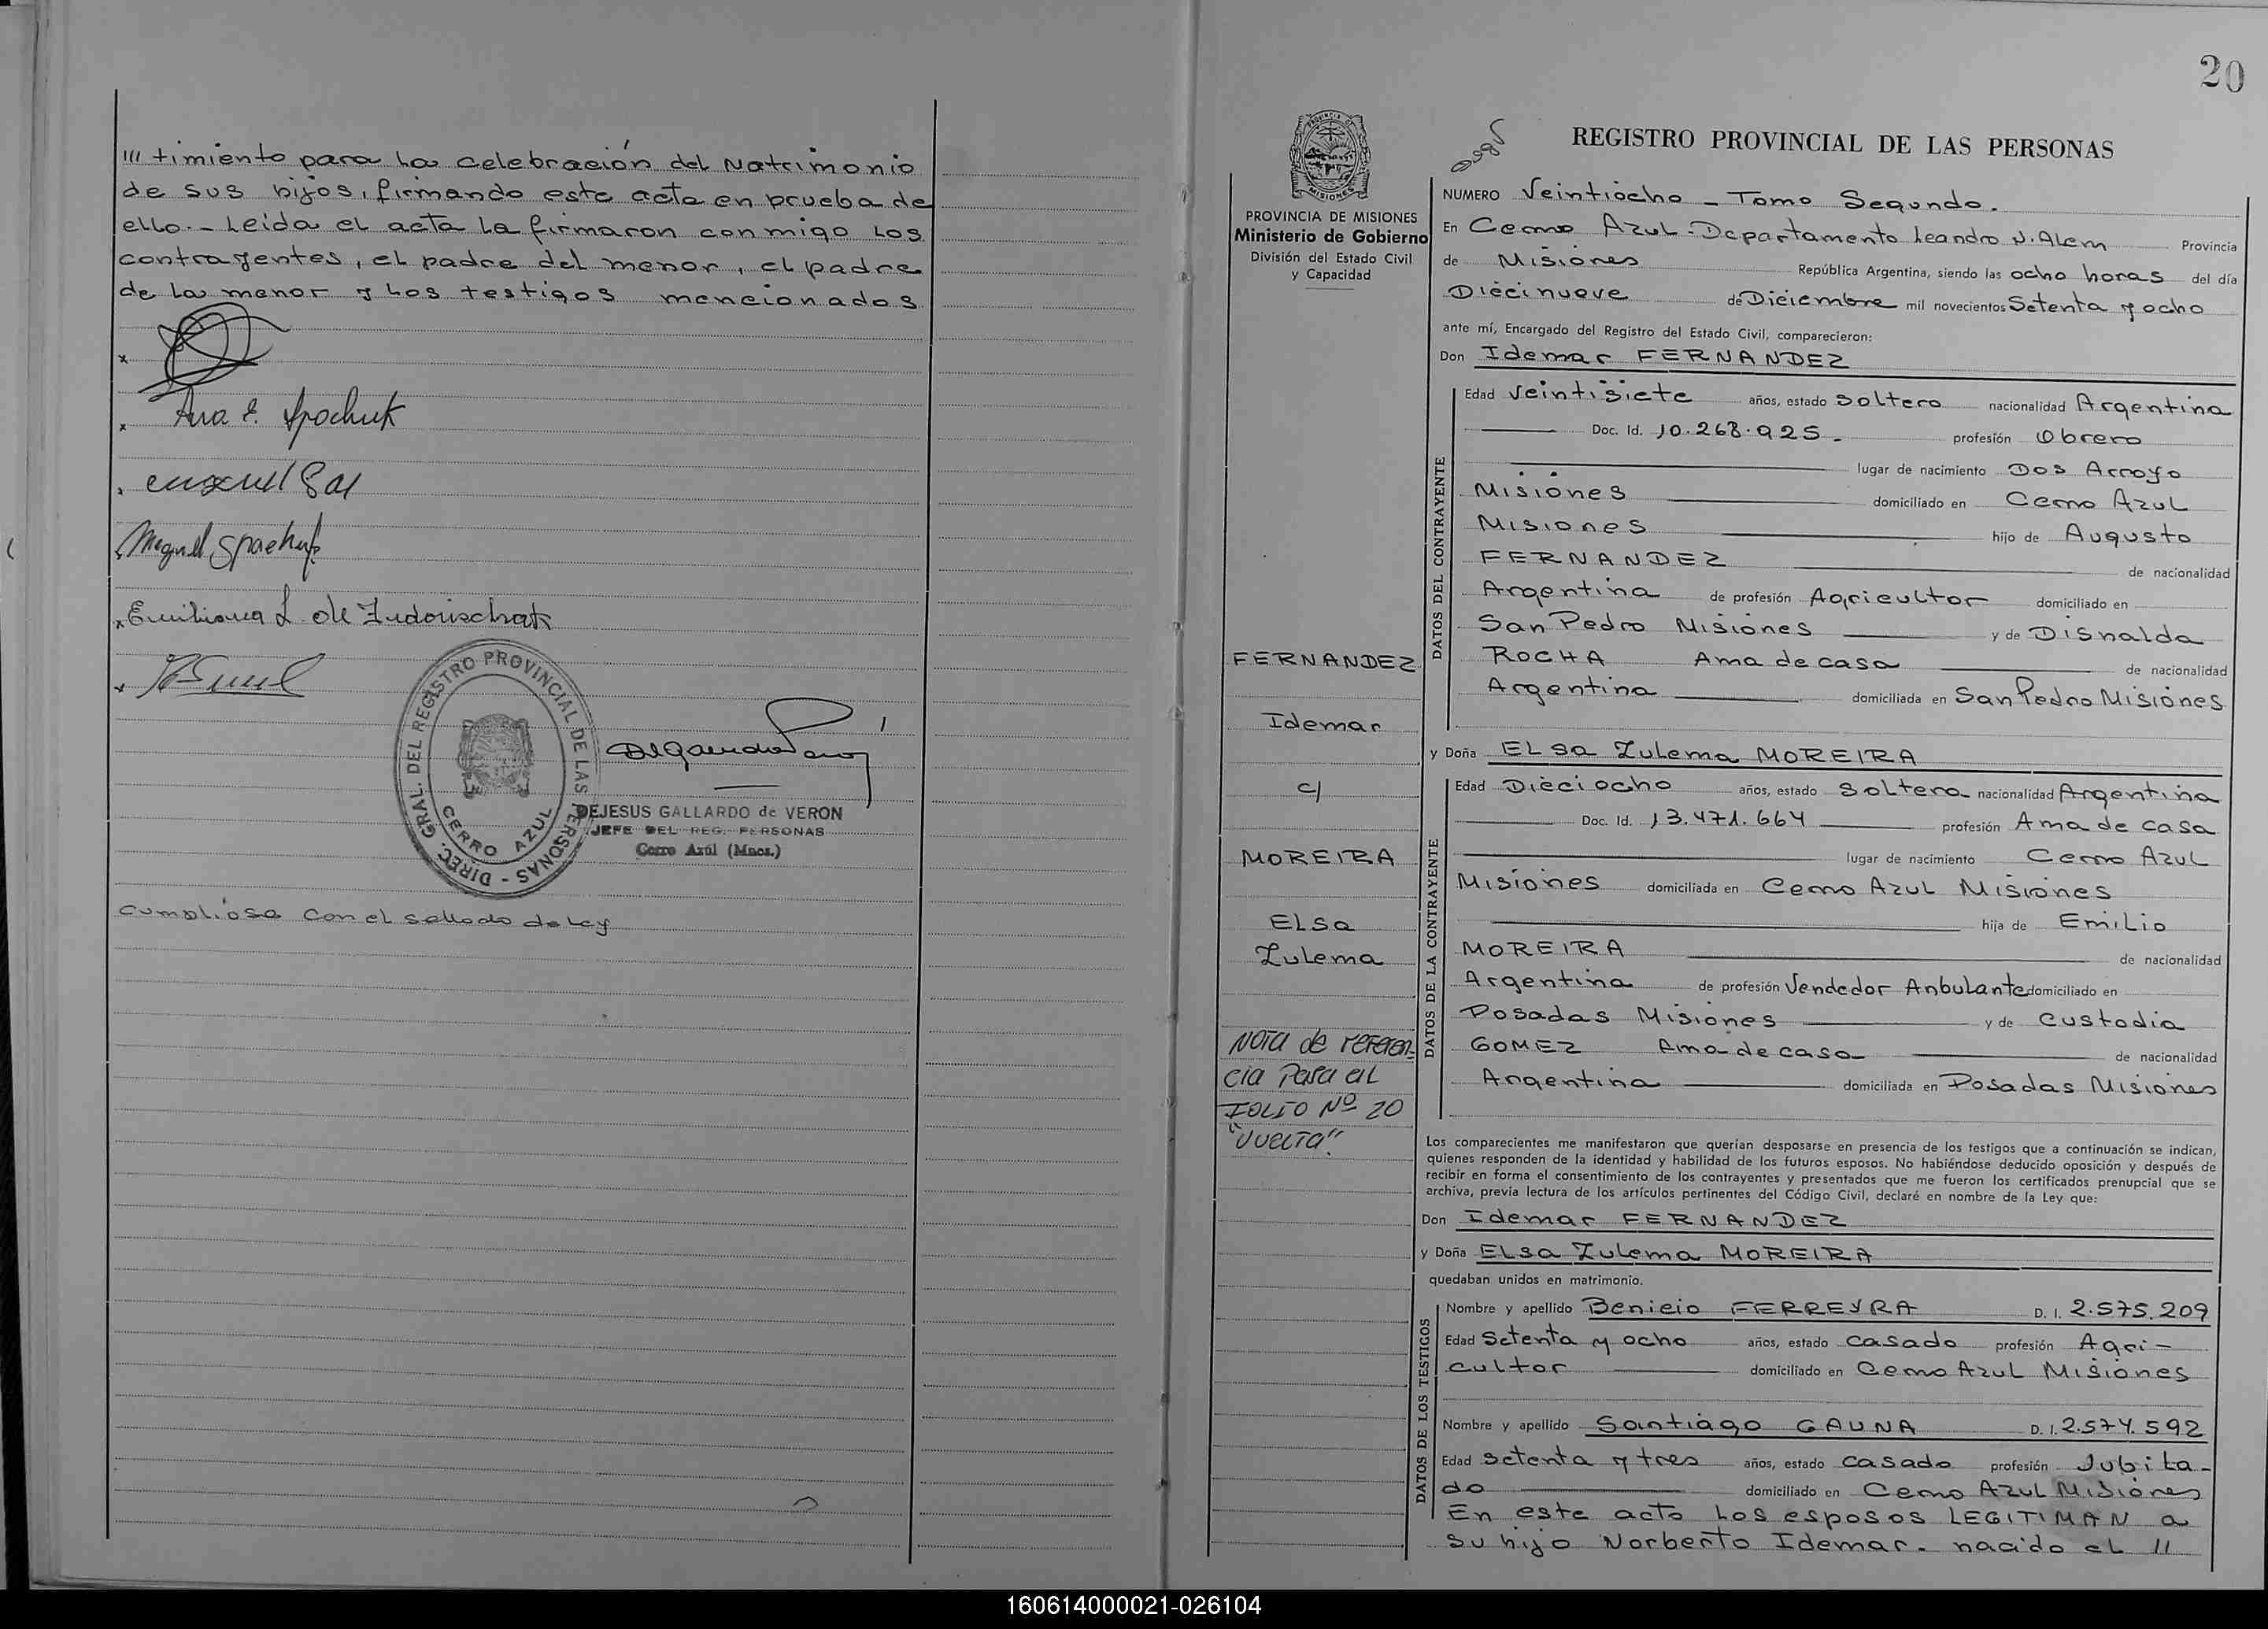 /// timiento para la celebración del Matrimonio
de sus hijos, firmando este acta en prueba de
ello.- Leida el acta la firmaron conmigo los
contrayentes, el padre del menor, el padre
de la menor y los testigos mencionados
x
x Ana E. Spachuk
x
x Miguel Spachuk
x Emiliana L. de
x
DIREC. GRAL. DEL REGISTRO PROVINCIAL DE LAS PERSONAS -
CERRO AZUL
DEJESUS GALLARDO de VERON
JEFE DEL REG. PERSONAS
Cerro Azúl (Mnes.)
Cumpliose con el sellado de Ley
20
REGISTRO PROVINCIAL DE LAS PERSONAS
PROVINCIA DE MISIONES
Ministerio de Gobierno
División del Estado Civil
y Capacidad
NUMERO Veintiocho - Tomo Segundo.
En Cerro Azul - Departamento Leandro N. Alem Provincia
de Misiones República Argentina, siendo las ocho horas del día
Diecinueve de Diciembre mil novecientos Setenta y ocho
ante mí, Encargado del Registro del Estado Civil, comparecieron:
Don Idemar FERNANDEZ
DATOS DEL CONTRAYENTE
Edad Veintisiete años, estado soltero nacionalidad Argentina
Doc. Id. 10.268.925.- profesión Obrero
lugar de nacimiento Dos Arroyo
Misiones domiciliado en Cerro Azul
Misiones hijo de Augusto
FERNANDEZ de nacionalidad
Argentina de profesión Agricultor domiciliado en
San Pedro Misiones y de Disnalda
ROCHA Ama de casa de nacionalidad
Argentina domiciliada en San Pedro Misiones
FERNANDEZ
Idemar
c/
MOREIRA
ELSa
Zulema
NOTA de referen-
cia Pasa al
FOLIO Nº 20
"VUELTA".
y Doña ELSa Zulema MOREIRA
DATOS DE LA CONTRAYENTE
Edad Dieciocho años, estado Soltera nacionalidad Argentina
Doc. Id. 13.471.664 profesión Ama de casa
lugar de nacimiento Cerro Azul
Misiones domiciliada en Cerro Azul Misiones
hija de Emilio
MOREIRA de nacionalidad
Argentina de profesión Vendedor Anbulante domiciliado en
Posadas Misiones y de Custodia
GOMEZ Ama de casa de nacionalidad
Argentina domiciliada en Posadas Misiones
Los comparecientes me manifestaron que querían desposarse en presencia de los testigos que a continuación se indican,
quienes responden de la identidad y habilidad de los futuros esposos. No habiéndose deducido oposición y después de
recibir en forma el consentimiento de los contrayentes y presentados que me fueron los certificados prenupcial que se
archiva, previa lectura de los artículos pertinentes del Código Civil, declaré en nombre de la Ley que:
Don Idemar FERNANDEZ
y Doña ELSa Zulema MOREIRA
quedaban unidos en matrimonio.
DATOS DE LOS TESTIGOS
Nombre y apellido Benicio FERREYRA D. I. 2.575.209
Edad Setenta y ocho años, estado casado profesión Agri-
cultor domiciliado en Cerro Azul Misiones
Nombre y apellido Santiago GAUNA D. I. 2.574.592
Edad setenta y tres años, estado casado profesión Jubila-
do domiciliado en Cerro Azul Misiones
En este acto los esposos LEGITIMAN a
su hijo Norberto Idemar. nacido el 11
160614000021-026104